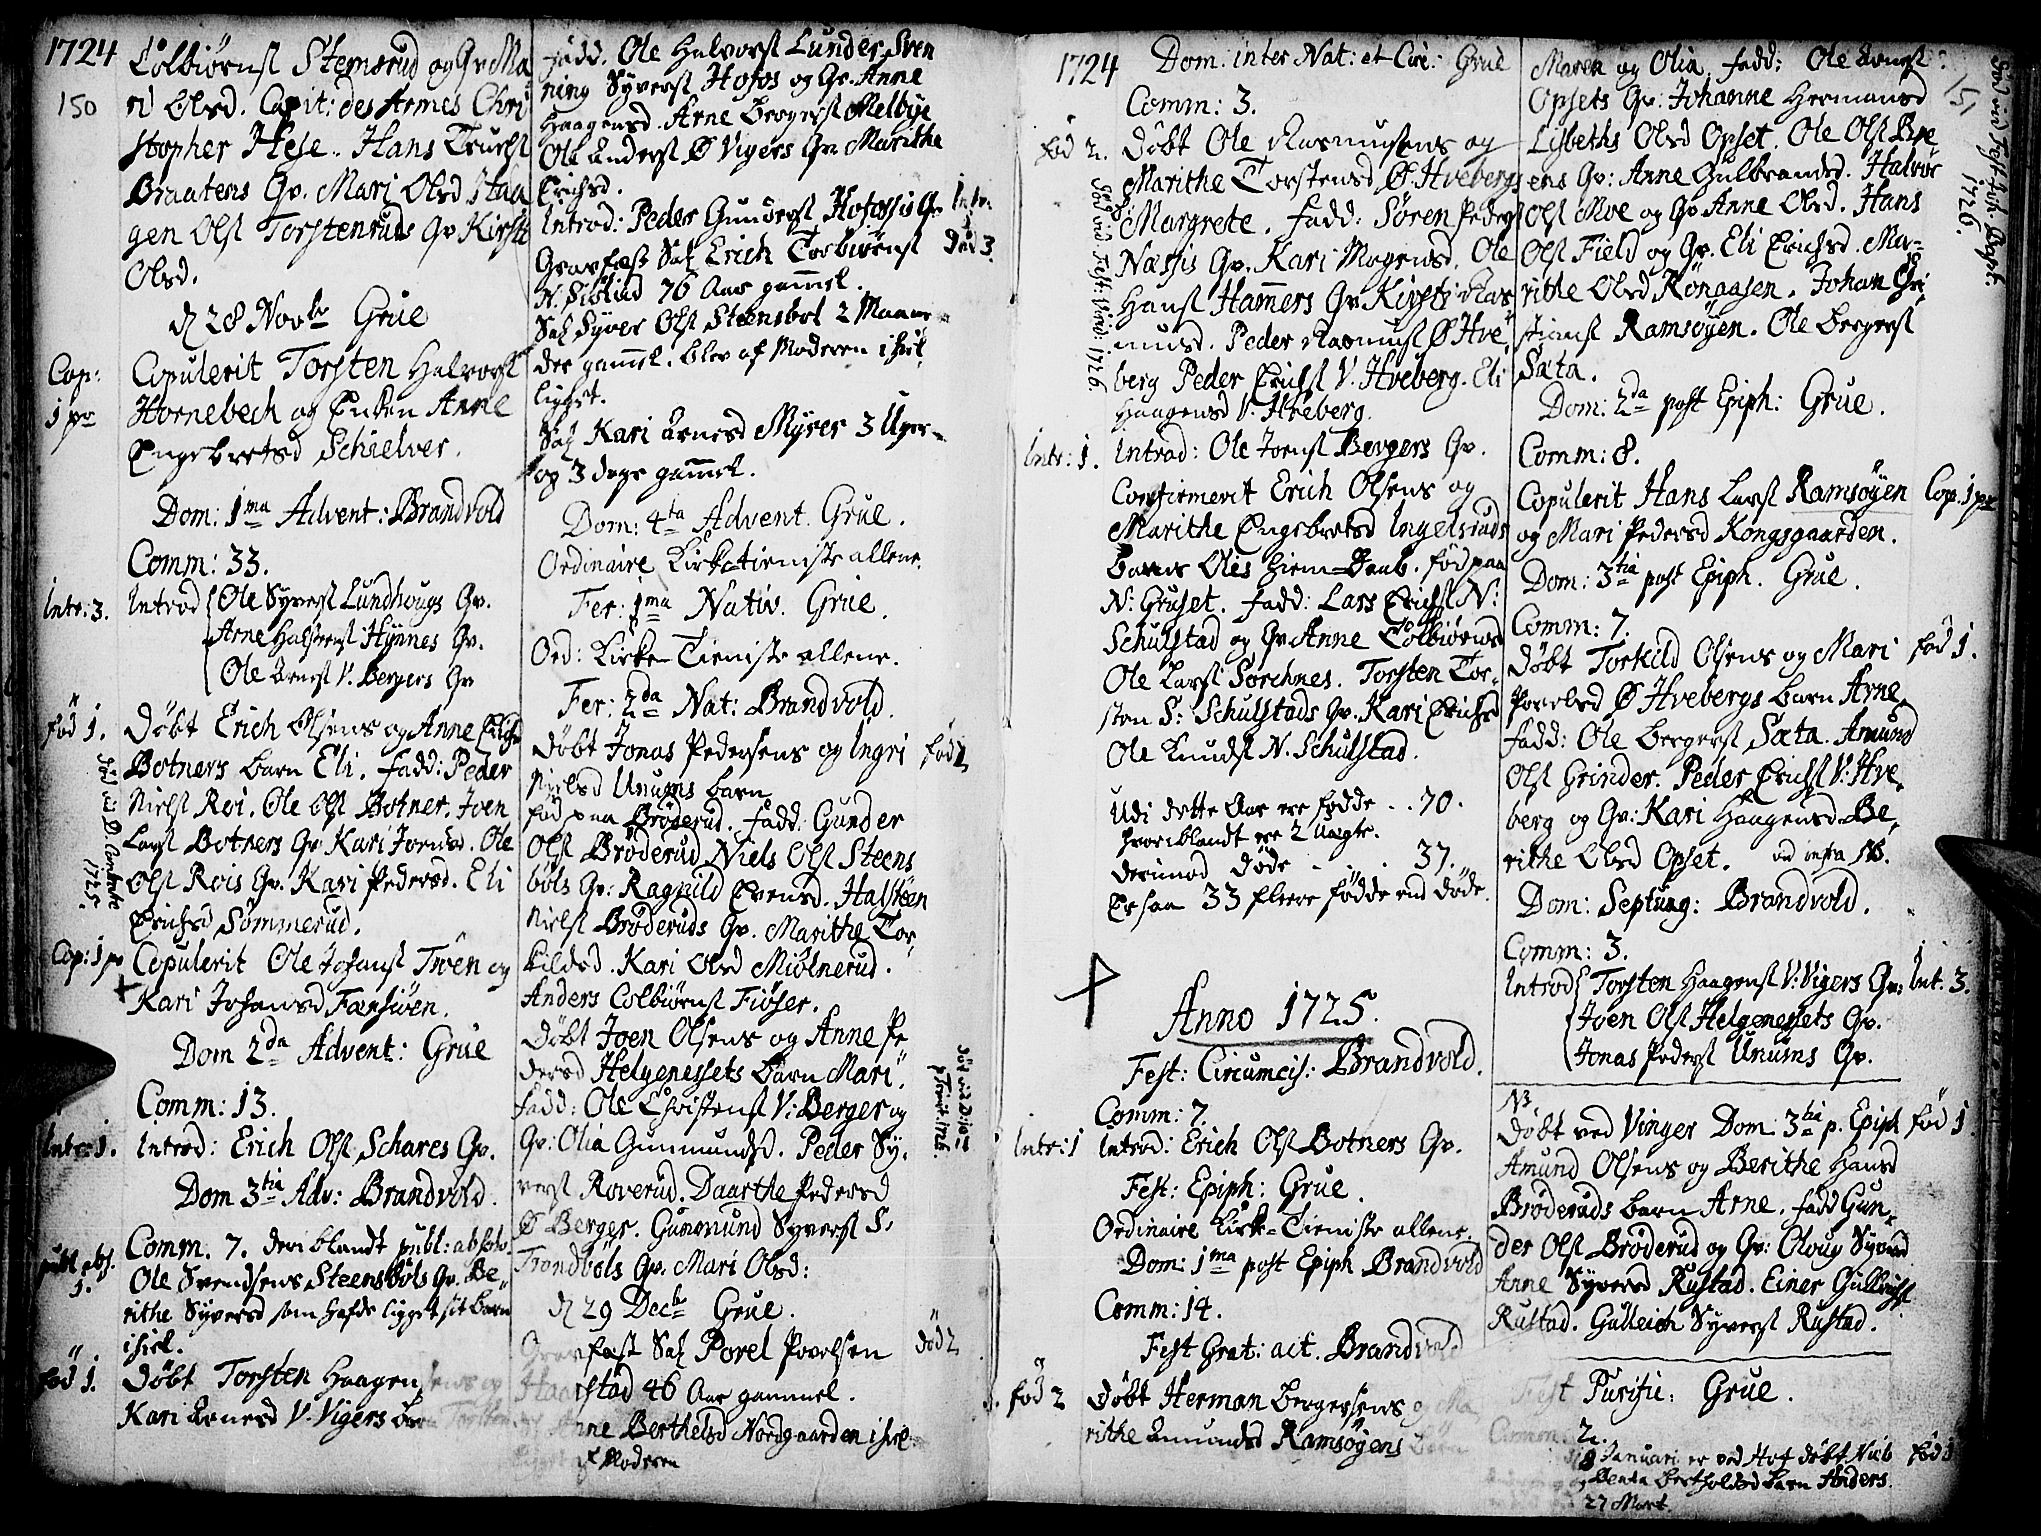 1724
150
Colbiørnsl Stemsrud og Gv. Ma
ri Olsd. Capit: des Armes Chri
stopher Hese. Hans Truelsl
Braatens Gv. Mari Olsd Haa
gen Olsl Torstenruds Gv Kirsti
Olsd.
d 28 Novbr Grue
Cop:
1 pr
Copulerit Torsten Halvorsl
Hornebech og Enken Anne
Engebretsd Schielver.
Dom: 1ma Advent: Brandvold
Comm: 33.
Intr: 3.
Introd Ole Syversl Lundhougs Gv.
Arne Halvorsl Hÿnnes Gv.
Ole Arnesl V. Bergers Gv
Fød 1.
Døbt Erich Olsens og Anne Erichsd
Botners barn Eli. Fadd: Peder
Nielsl Roi. Ole Olsl Botner. Joen
Larsl Botners Gv Kari Joensd. Ole
Olsl Rois Gv. Kari Pedersd. Eli
Erichsd Sømmerud.
1725.
Cop: 1 pr
Copulerit Ole Johansl Troen og
Kari Johansd Fæhsiøen.
Dom 2da Advent: Grue
Comm: 13.
Intr: 1.
Introd: Erich Olsl Schares Gv.
Dom 3tia Adv: Brandvold.
publ abs.
1.
Comm. 7. deriblandt publ: absolv.
Ole Svendsens Steensbøls Gv. Be-
rithe Syversd som hafde ligget sit barn
ihiel.
Fød 1.
Døbt Torsten Haagensens og
Kari Arnesd V. Vigers barn Torsten
Fadd. Ole Halvorsl Lunder, Sven
ning Syversl Hofos og Gv. Anne
Haagensd. Arne Bergersl Melbÿe
Ole Andersl Ø Vigers Gv. Marithe
Erichsd.
Introd: Peder Gundersl Hofossis Gv
Intr:
1
Død 3.
Gravfæst Sal Erich Torbiørnsl
N. Sistiud 76 Aar gammel.
Sal Syver Olsl Steensbøl 2 Maane
der gammel. blev af Moderen ihiel
ligget.
Sal Kari Arnesd Mÿrer 3 Uger
og 3 dage gammel.
Dom: 4ta Advent. Grue.
Ordinaire Kirketieniste allene.
Fer: 1ma Nativ. Grue.
Ord: Kirke-Tieniste allene.
Fer: 2da Nat: Brandvold.
Døbt Jonas Pedersens og Ingri
Nielsd Unums barn
Fød paa Brøderud. Fadd: Gunder
Olsl Brøderud Niels Olsl Steens
bøls Gv: Ragnild Evensd. Halsteen
Nielsl Brøderuds Gv. Marithe Tor-
kildsd. Kari Olsd Miølnerud.
Anders Colbiørnsl Fiøser.
Døbt Joen Olsens og Anne Pe
dersd Helgenessets barn Mari.
Fadd: Ole Christensl V: Berger og
Gv: Olia Gunmundsd. Peder Sy-
versl Roverud. Daarthe Pedersd
Ø Berger. Gunmund Syversl S.
Trondbøls Gv. Mari Olsd:
d 29 Decbr Grue.
Død 2
Gravfæst Sal Povel Povelsen
Haarstad 46 Aar gammel.
Anne Berthelsd Nordgaarden ihiel
af Moderen
1724
Dom: inter Nat: et Circ: Grue
Comm: 3.
Fød 2.
Døbt Ole Rasmusens og
Marithe Torstensd Ø. Hvebergs
Margrete. Fadd: Søren Pedersl
Næssis Gv. Kari Mogensd. Ole
Hansl Hammers Gv Kirsti Ras
musd. Peder Rasmusl Ø Hve-
berg Peder Erichsl V. Hveberg. Eli
Haagensd V. Hveberg.
Intr: 1.
Introd: Ole Joensl Bergers Gv.
Confirmerit Erich Olsens og
Marithe Engebretsd Ingelsruds
barns Olis hiem-Daab. Fød paa
N: Gruset. Fadd: Lars Erichsl N:
Schulstad og Gv Anne Colbiørnsd
Ole Larsl Sorchnes. Torsten Tor-
sten S: Schulstads Gv. Kari Erichsd
Ole Knudsl N. Schulstad.
Udi dette Aar ere fødde .. 70.
hvoriblandt ere 2 Uægte.
derimod døde . . . 37.
Er saa 33 fleere fødde end døde.
Anno 1725.
Fest: Circumcis: Brandvold.
Comm: 7.
Intr: 1
Introd: Erich Olsl Botners Gv.
Fest: Epiph: Grue.
Ordinaire Kirke-Tieniste allene.
Dom: 1ma post Epiph Brandvold
Comm: 14.
Fest Grat: act. Brandvold
Fød 2
Døbt Herman Bergersens og Ma
rithe Amundsd Ramsøÿens barn
151
Maren og Olia. Fadd: Ole Arnesl
Opsets Gv: Johanne Hermansd
Lisbeths Olsd Opset. Ole Olsl Bre
ens Gv: Anne Gulbrandsd. Halvor
Olsl Moe og Gv Anne Olsd. Hans
Olsl Field og Gv. Eli Erichsd. Ma-
rithe Olsd Rønaasen. Johan Chri-
stiansl Ramsøÿen. Ole Bergersl
Sæta.
1726.
Dom: 2da post Epiph: Grue.
Comm: 8.
Copulerit Hans Larsl Ramsøÿen
Cop. 1 pr
og Mari Pedersd Kongsgaarden.
Dom: 3tia post Epiph. Grue.
Comm: 7.
Døbt Torkild Olsens og Mari
Fød 1.
Povelsd Ø Hvebergs barn Arne
Fadd: Ole Bergersl Sæta. Amund
Olsl Grinder. Peder Erichsl V: Hve-
berg og Gv: Kari Haagensd Be-
rithe Olsd Opset. vid infra NB.
Dom: Septuag: Brandvold.
Comm: 3.
Introd Torsten Haagensl V: Vigers Gv:
Int. 3.
Joen Olsl Helgenessets Gv.
Jonas Pedersl Unums Gv.
NB
Døbt ved Vinger Dom 3tia p. Epiph
Fød 1
Amund Olsens og Berithe Hansd
Brøderuds barn Arne. Fadd Gun-
der Olsl Brøderud og Gv: Oloug Syversd
Anne Syversd Rustad. Einer Gulleichsl
Rustad. Gulleich Syversl Rustad.
Fest Purific: Grue.
Comm: 2.
Januari er ved Hof døbt
Bertholdsd barn Anders.
27 Mart.